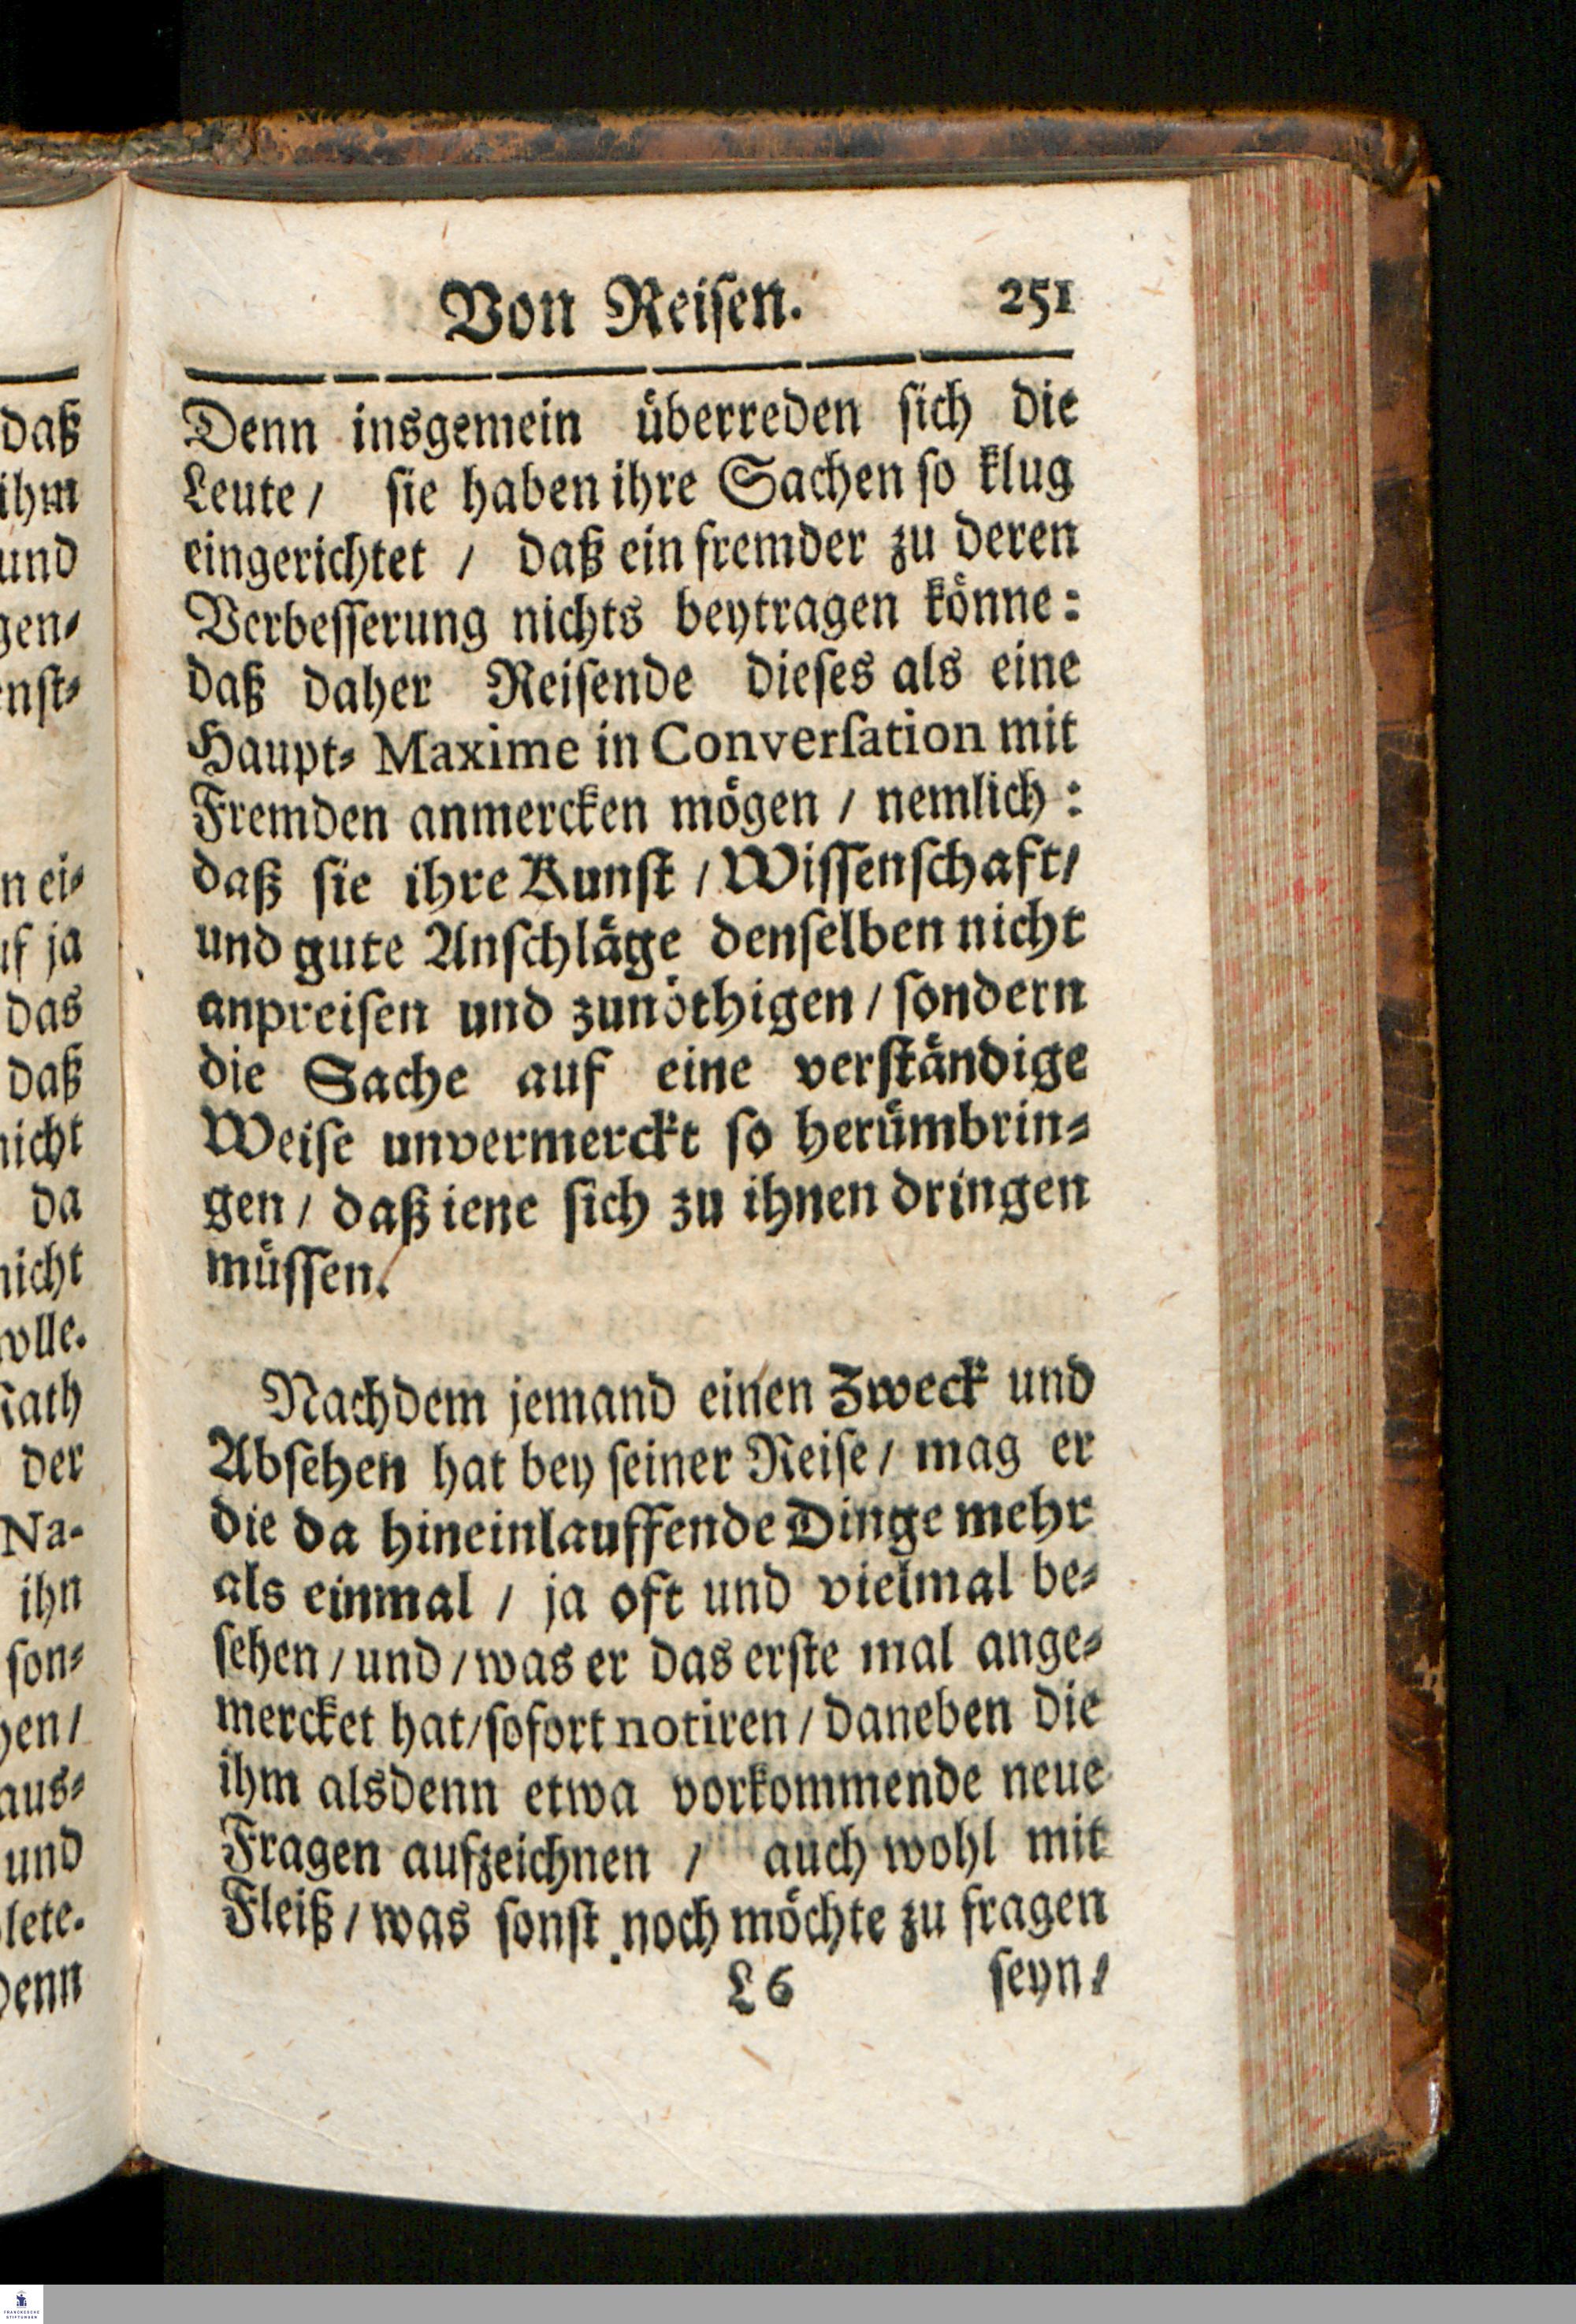 Von Reisen. 251
Denn insgemein überreden sich die
Leute / sie haben ihre Sachen so klug
eingerichtet / daß ein fremder zu deren
Verbesserung nichts beytragen könne:
daß daher Reisende dieses als eine
Haupt- Maxime in Conversation mit
Fremden anmercken mögen / nemlich:
daß sie ihre Kunst / Wissenschaft /
und gute Anschläge denselben nicht
anpreisen und zunöthigen / sondern
die Sache auf eine verständige
Weise unvermerckt so herümbrin-
gen / daß iene sich zu ihnen dringen
müssen.
Nachdem jemand einen Zweck und
Absehen hat bey seiner Reise / mag er
die da hineinlauffende Dinge mehr
als einmal / ja oft und vielmal be-
sehen / und / was er das erste mal ange-
mercket hat / sofort notiren / daneben die
ihm alsdenn etwa vorkommende neue
Fragen aufzeichnen / auch wohl mit
Fleiß / was sonst noch möchte zu fragen
L 6 seyn /
daß
ihm
und
gen-
nst-
n ei-
uf ja
das
daß
nicht
da
nicht
wolle.
Rath
der
Na-
ihn
son-
hen /
aus-
und
lete.
Denn
FRANCKESCHE
STIFTUNGEN